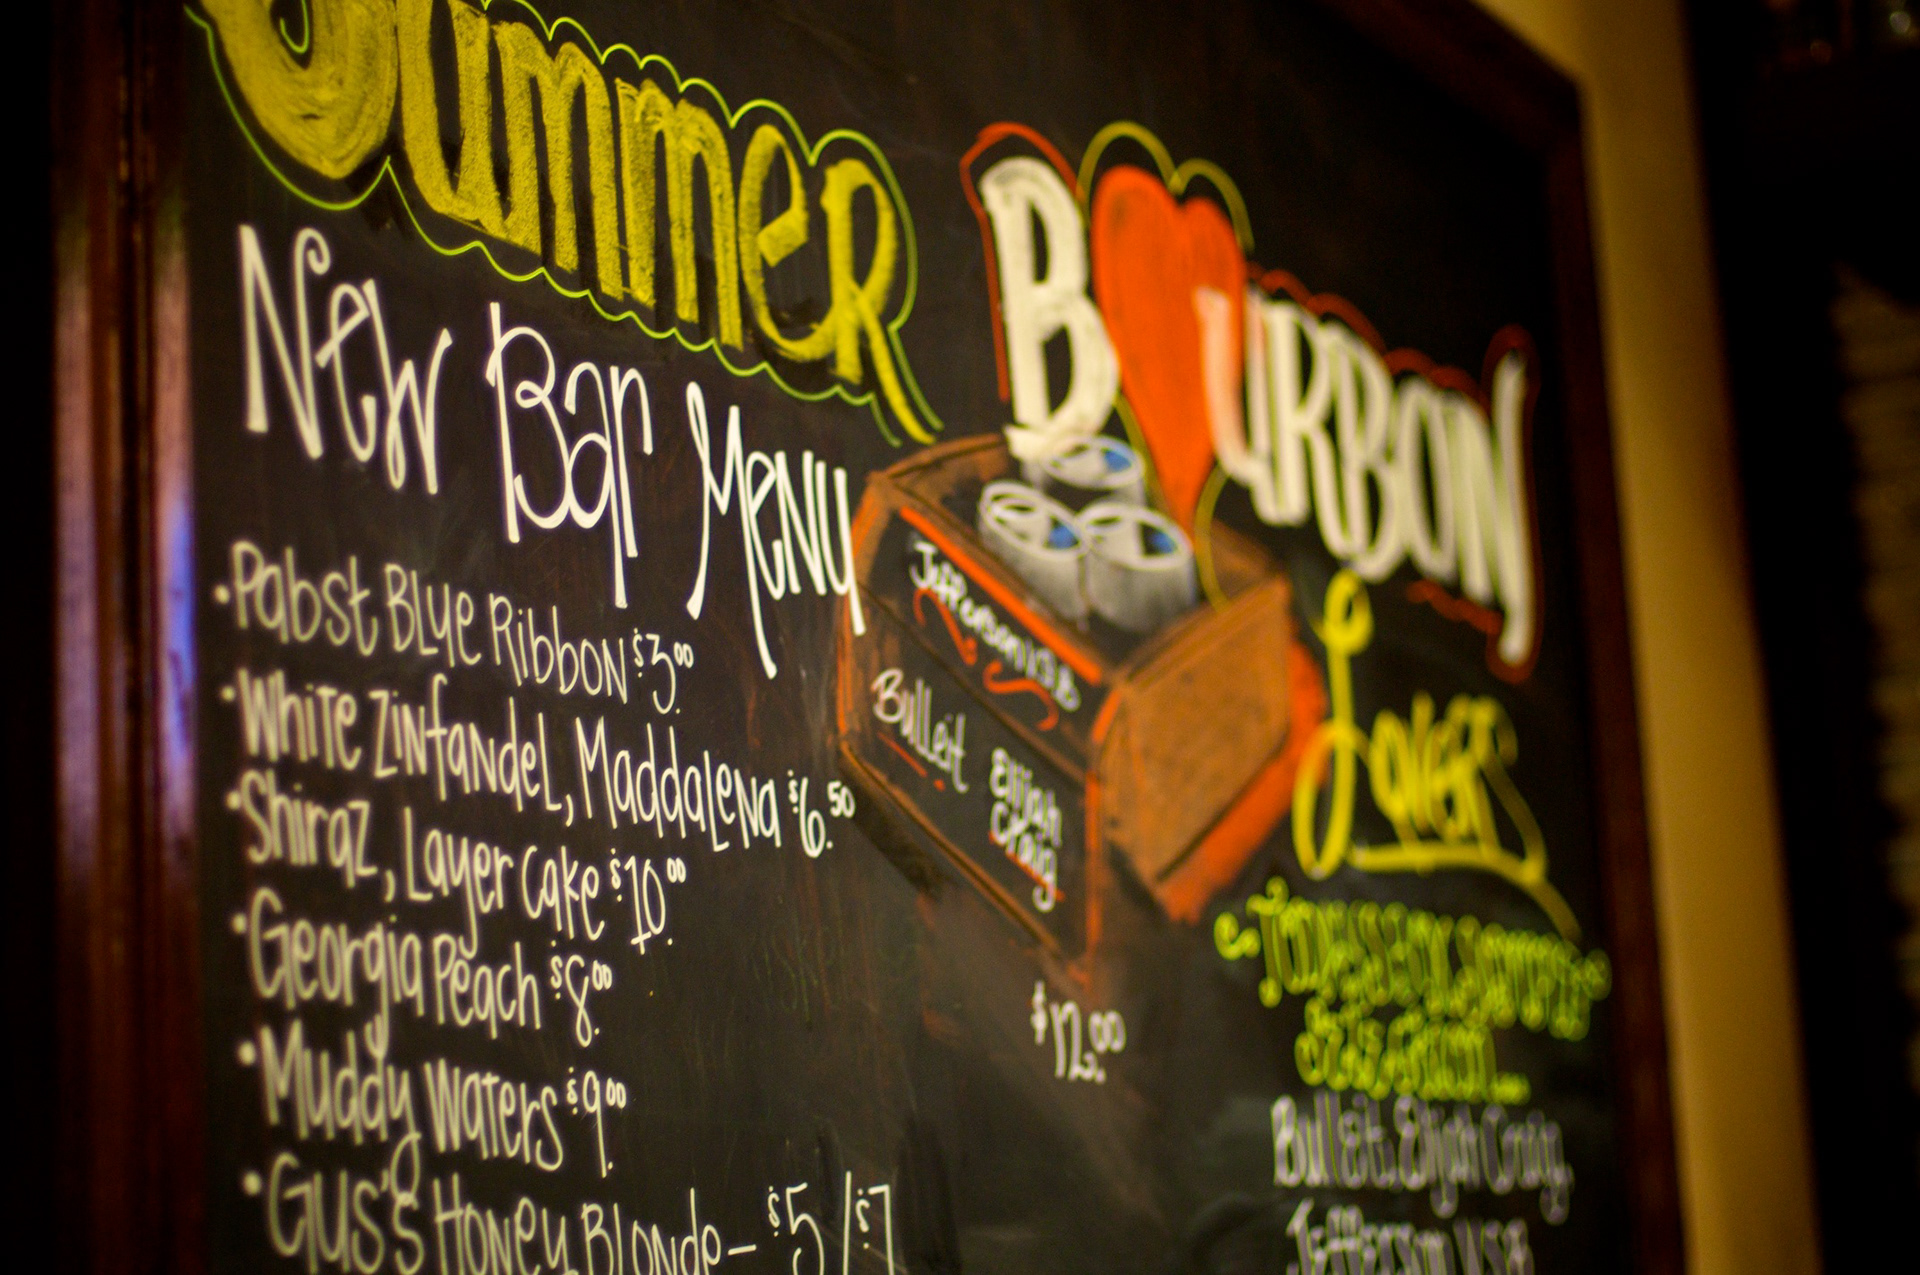 Summer
New Bar Menu
• Pabst Blue Ribbon $3.00
• White Zinfandel, Maddalena $6.50
• Shiraz, Layer Cake $10.00
• Georgia Peach $8.00
• Muddy Waters $9.00
• Gus's Honey Blonde – $5 / $7
B♥URBON
Lovers
Jefferson's
Bulleit
Elijah
Craig
$12.00
Bulleit, Elijah Craig,
Jefferson